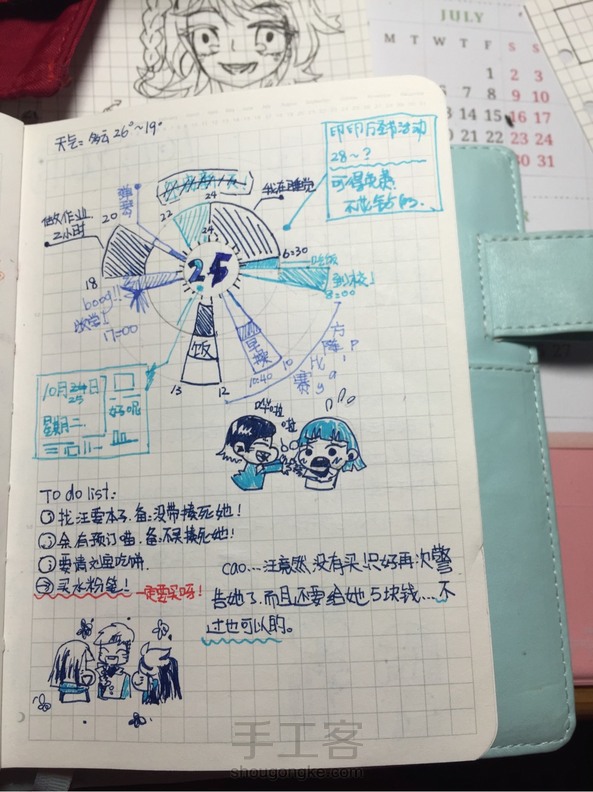 JULY
M T W T F S S
1 2 3
8 9 10
13 14 15 16 17
20 21 22 23 24
30 31
27
天气:多云26°~19°
印印万圣节活动
28~?
可得免费
不能钻的.
我在睡觉
弹琴
做作业
2小时
20
22
24
24
6:30
吃饭
到校!
8:00
18
boog!!
放学!
17:00
25
饭
早操
13
12
10:40
10
方阵
比赛
10月25日
星期二
好呢
哗啦
啦
To do list:
① 找汪要本子.备:没带揍死她!
② 余有预订喵.备:不买揍死她!
③ 要请刘宜吃饼.
④ 买水粉笔! 一定要买呀!
cao...汪竟然没有买!只好再次警
告她了.而且还要给她5块钱...不
过也可以的。
手工客
shougongke.com